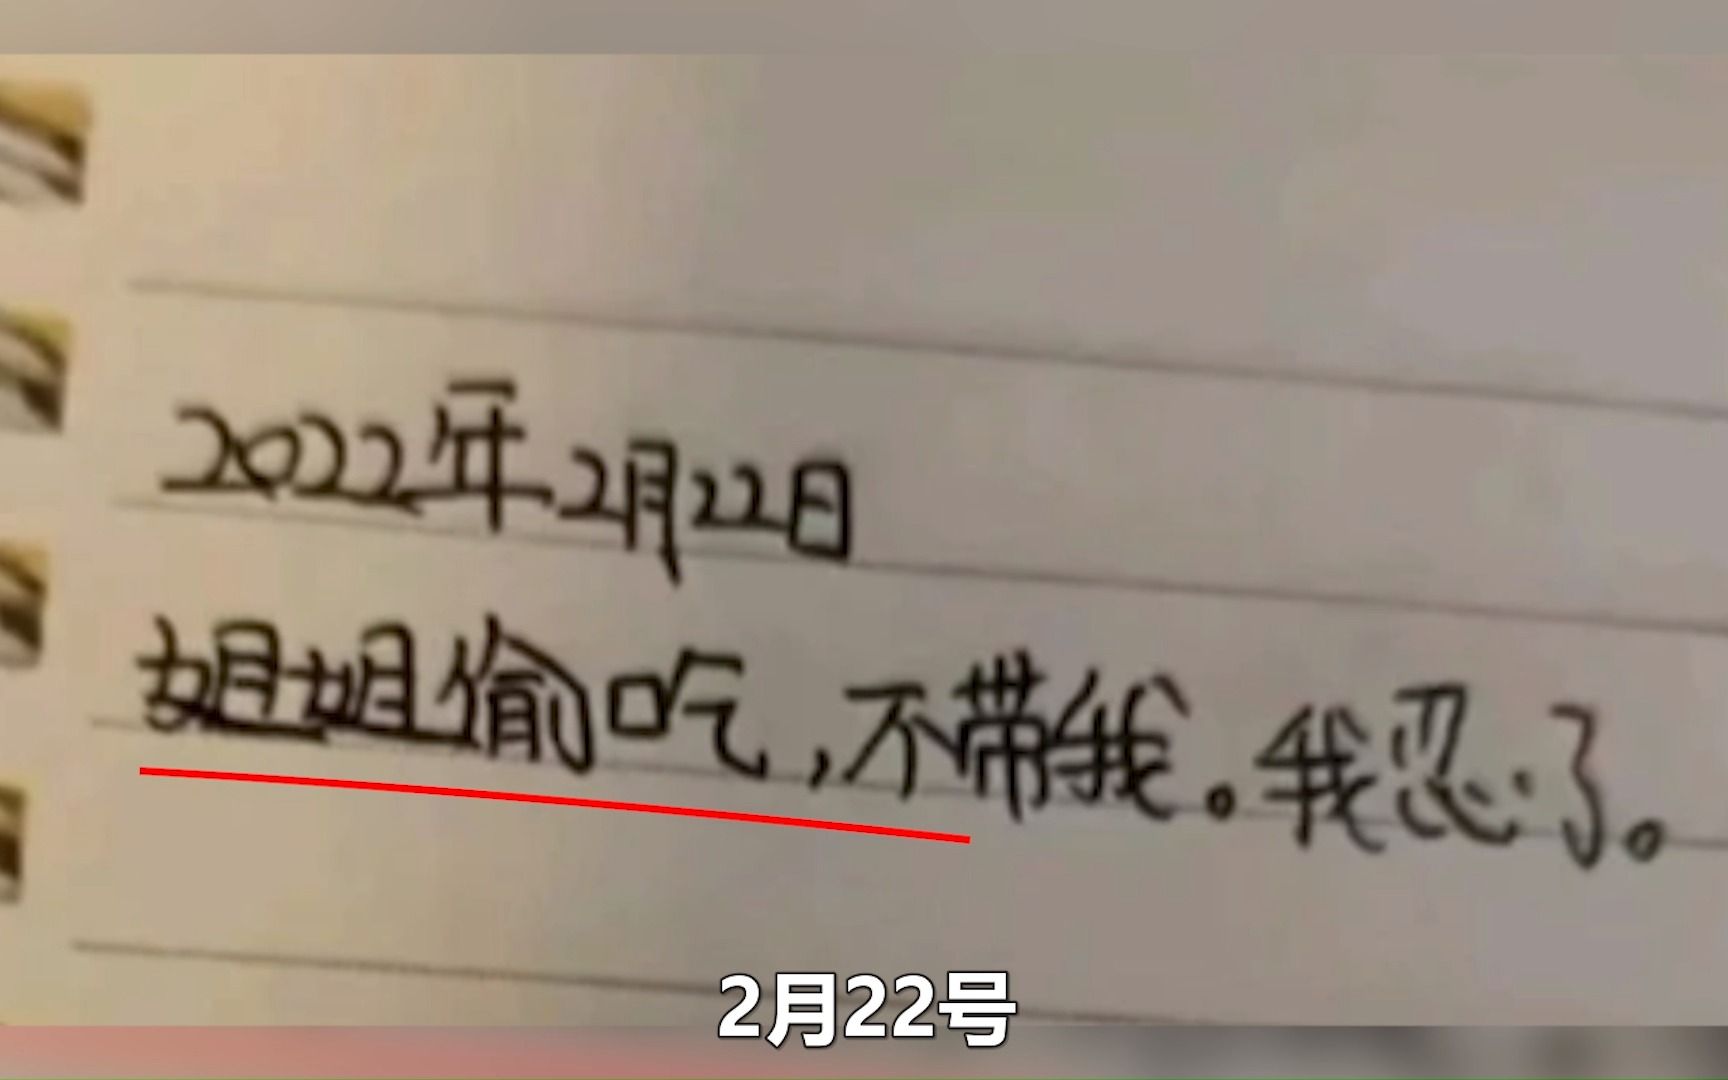 2022年2月22日
姐姐偷吃,不带我。我忍了。
2月22号